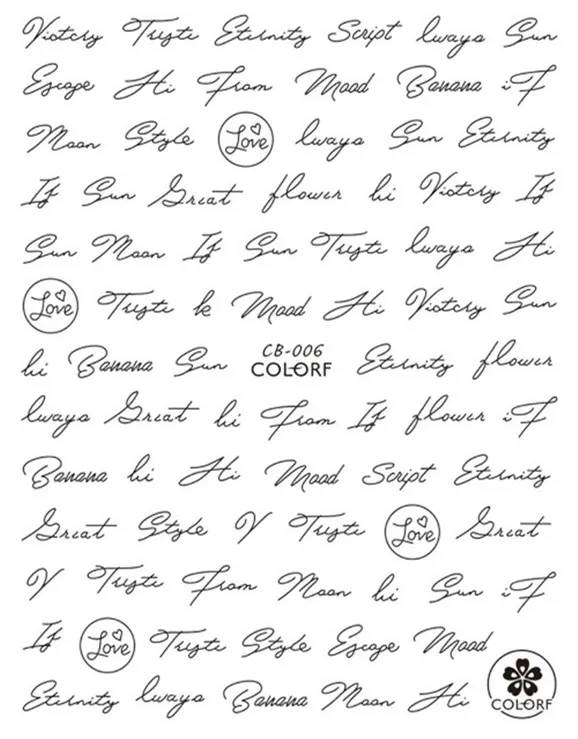 Viotcry Truste Eternity Script lwaya Sun
Escape Hi From Mood Banana iF
Moon Style Love lwaya Sun Eternity
If Sun Great flower hi Viotcry If
Sun Moon If Sun Truste lwaya Hi
Love Truste k Mood Hi Viotcry Sun
hi Banana Sun CB-006 COLORF Eternity flower
lwaya Great hi From If flower iF
Banana hi Hi Mood Script Eternity
Great Style V Truste Love Great
V Truste From Moon hi Sun iF
If Love Truste Style Escape Mood
Eternity lwaya Banana Moon Hi COLORF